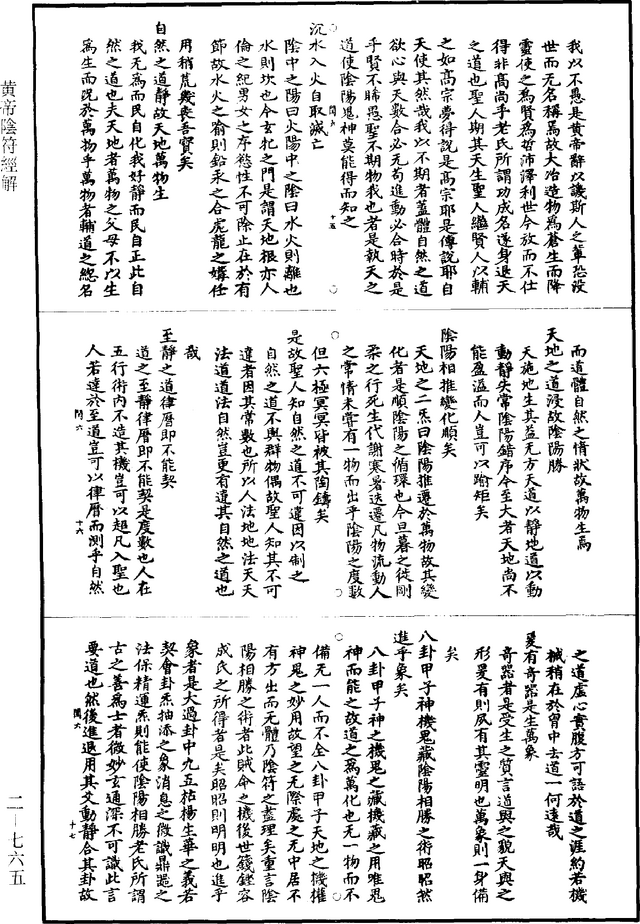 我以不愚是黃帝辭以譏斯人之輩恐沒
世而无名稱焉故大冶造物爲蒼生而降
靈使之爲賢爲哲沛澤利世今放而不仕
得非高尚乎老氏所謂功成名遂身退天
之道也聖人期其天生聖人繼賢人以輔
之如高宗夢得說是高宗耶是傅說耶自
天使其然哉我以不期者蓋體自然之道
欲心與天數合必无苟進動必合時於是
乎賢不睎愚聖不期物我也者是執天之
道使陰陽鬼神莫能得而知之
十五
沉水入火自取滅亡
陰中之陽曰火陽中之陰曰水火則離也
水則坎也今玄牝之門是謂天地根亦人
倫之紀男女之序慾性不可除止在於有
節故水火之喻則鉛汞之合虎龍之媾任
用稍荒幾喪吾寶矣
自然之道靜故天地萬物生
我无爲而民自化我好靜而民自正此自
然之道也夫天地者萬物之父母不以生
爲生而況於萬物乎萬物者輔道之總名
而道體自然之情狀故萬物生焉
天地之道浸故陰陽勝
天施地生其益无方天道以靜地道以動
動靜失常陰陽錯序今至大者天地尚不
能盈溢而人豈可以踰矩矣
陰陽相推變化順矣
天地之二炁曰陰陽推遷於萬物故其變
化者是順陰陽之循環也今旦暮之徒剛
柔之行死生代謝寒暑迭遷凡物流動人
之常情未嘗有一物而出乎陰陽之度數
但六極冥冥皆被其陶鑄矣
是故聖人知自然之道不可違因以制之
自然之道不與群物偶故聖人知其不可
違者因其常數也所以人法地地法天天
法道道法自然豈更有違其自然之道也
哉
至靜之道律曆即不能契
道之至靜律曆即不能契是度數也人在
五行術內不造其機豈可以超凡入聖也
人若達於至道豈可以律曆而測乎自然
閏六
十六
之道虛心實腹方可語於道之涯約若機
械稍在於胷中去道一何遠哉
爰有奇器是生萬象
奇器者是受生之質言道與之貌天與之
形爰有則夙有其靈明也萬象則一身備
矣
八卦甲子神機鬼藏陰陽相勝之術昭昭然
進乎象矣
八卦甲子神之機鬼之藏機藏之用唯鬼
神而能之故道之爲萬化也无一物而不
備无一人而不全八卦甲子天地之機權
神鬼之妙用故望之无際處之无中居不
有方出而无體乃陰符之盡理矣重言陰
陽相勝之術者此賊命之機後世籛鏗容
成氏之所得者是矣昭昭則明明也進乎
象者是大過卦中九五枯楊生華之義若
契會卦炁抽添之象消息之微識鼎器之
法保精運炁則能使陰陽相勝老氏所謂
古之善爲士者微妙玄通深不可識此言
要道也然後進退用其爻動靜合其卦故
閏六
十七
黃帝陰符經解
二－七六五